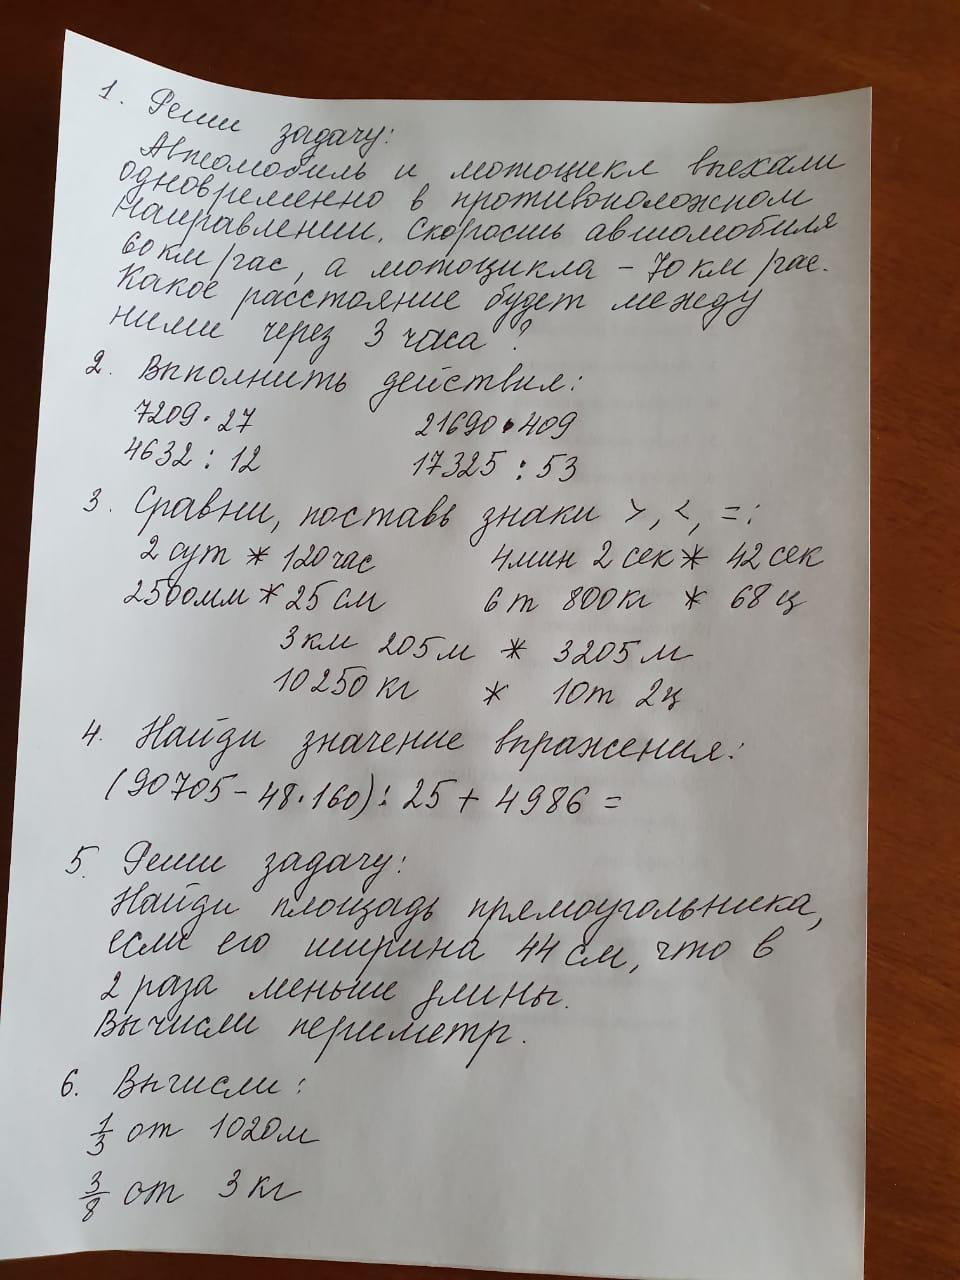 1. Реши задачу:
Автомобиль и мотоцикл выехали
одновременно в противоположном
направлении. Скорость автомобиля
60 км/час, а мотоцикла - 70 км/час.
Какое расстояние будет между
ними через 3 часа?
2. Выполнить действия:
7209 · 27 21690 · 409
4632 : 12 17325 : 53
3. Сравни, поставь знаки >, <, = :
2 сут * 120 час 4 мин 2 сек * 42 сек
2500 мм * 25 см 6 т 800 кг * 68 ц
3 км 205 м * 3205 м
10250 кг * 10 т 2 ц
4. Найди значение выражения:
(90705 - 48 · 160) : 25 + 4986 =
5. Реши задачу:
Найди площадь прямоугольника,
если его ширина 44 см, что в
2 раза меньше длины.
Вычисли периметр.
6. Вычисли:
1/3 от 1020 м
3/8 от 3 кг